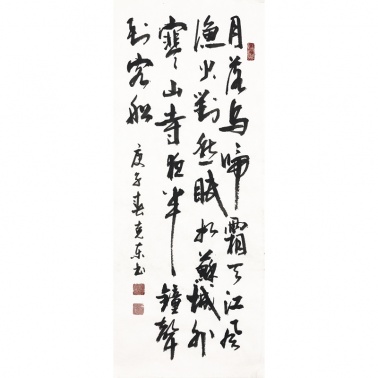 月落乌啼霜天江枫
漁火對愁眠姑蘇城外
寒山寺夜半鐘聲
到客船
庚子春克东书